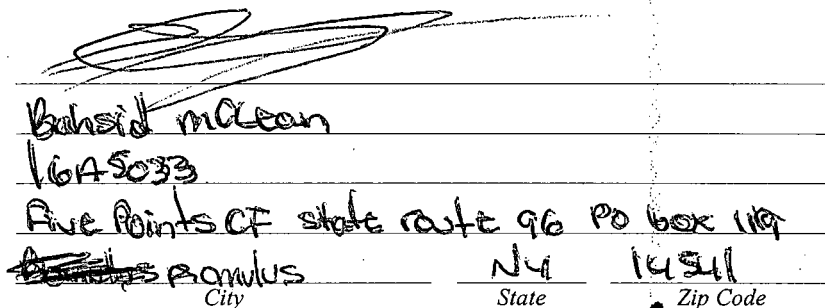 Bahsid mclean
16A5033
Five Points CF state route 96 PO box 119
Romulus NY 14541
City State Zip Code